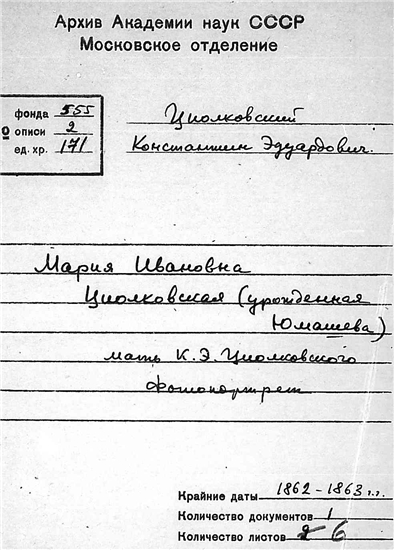 Архив Академии наук СССР
Московское отделение
№
фонда 555
описи 2
ед. хр. 171
Циолковский
Константин Эдуардович.
Мария Ивановна
Циолковская (урожденная
Юмашева)
мать К.Э. Циолковского
Фотопортрет
Крайние даты 1862-1863 г.г.
Количество документов 1
Количество листов 2 6